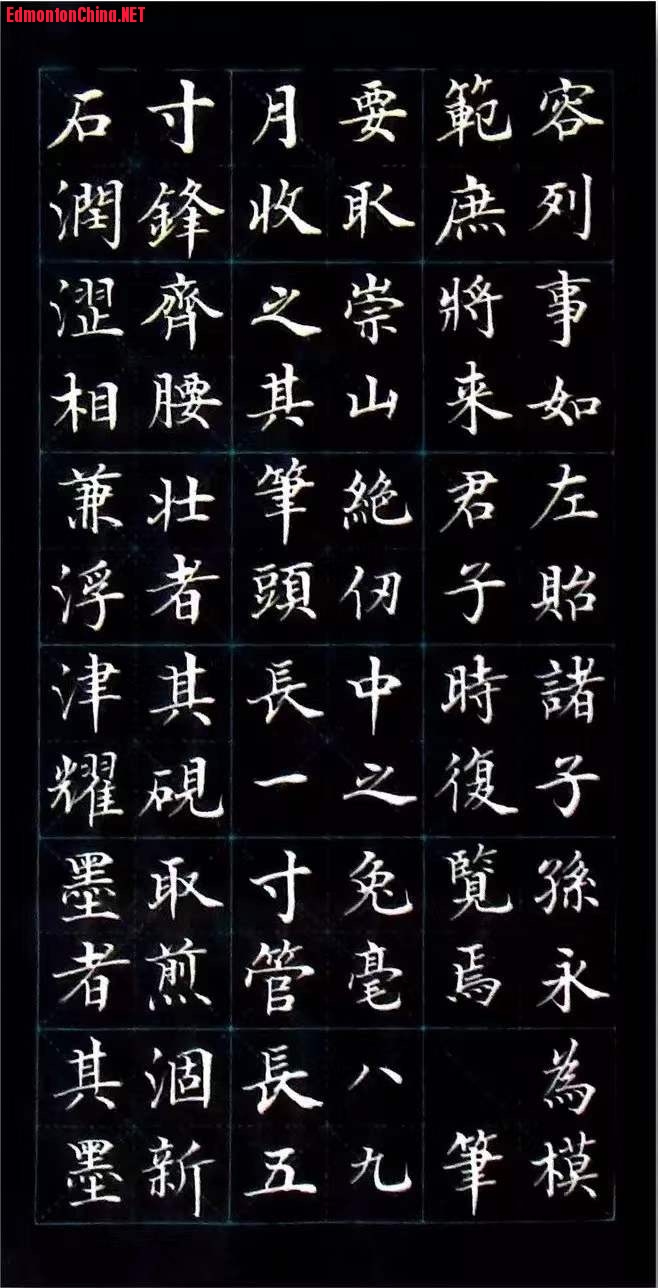 EdmontonChina.NET
容列事如左貽諸子孫永為模
範庶將来君子時復覽焉 筆
要取崇山絶仞中之兔毫八九
月收之其筆頭長一寸管長五
寸鋒齊腰壯者其硯取煎涸新
石潤澀相兼浮津耀墨者其墨